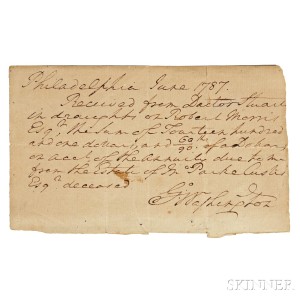 Philadelphia June 1787.
Received from Doctor Stuart
in draughts on Robert Morris
Esqr. the sum of Fourteen hundred
and one dollars, and 60/90 of a dollar
on acct of the annuity due to me
from the Estate of Jn Parke Custis
Esqr. deceased
Go: Washington
SKINNER